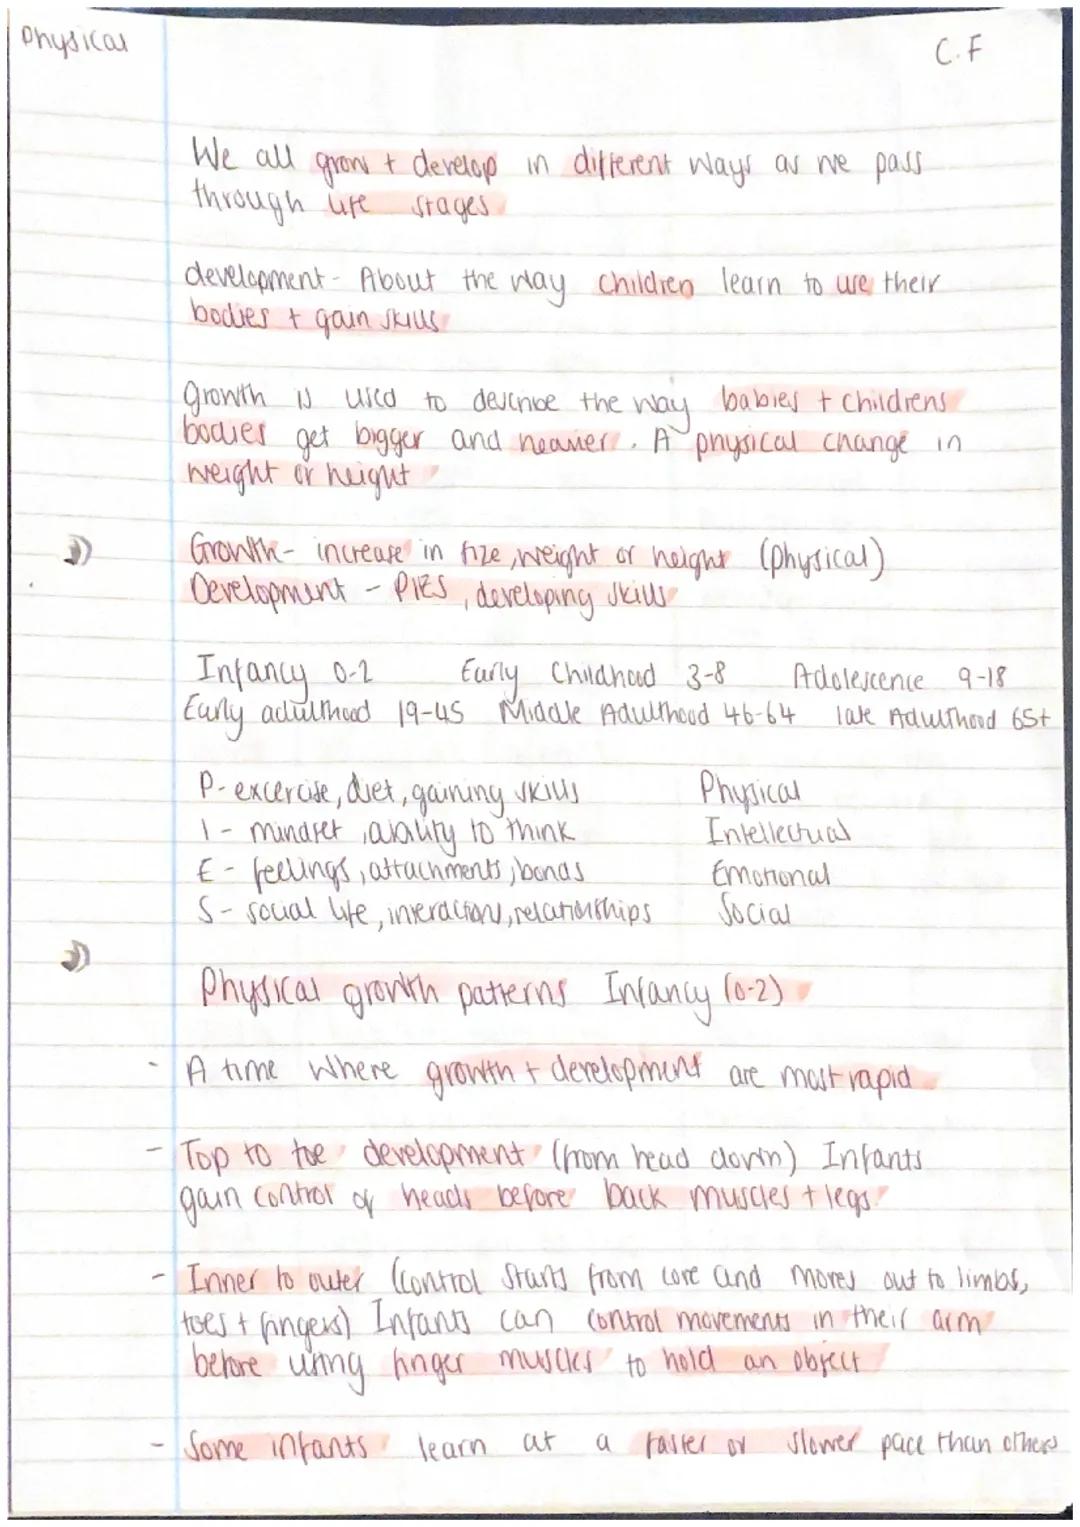 Physical
C.F
We all grow + develop in different ways as we pass
through life stages
development - About the way children learn to use their
bodies + gain skills
Growth is used to describe the way babies + childrens
bodies get bigger and heavier. A physical change in
weight or height
Growth - increase in size, weight or height (physical)
Development - PIES, developing skills
Infancy 0-2 Early Childhood 3-8 Adolescence 9-18
Early adulthood 19-45 Middle Adulthood 46-64 late Adulthood 65+
P - excercise, diet, gaining skills Physical
I - mindset, ability to think Intellectual
E - feelings, attachments, bonds Emotional
S - social life, interactions, relationships Social
Physical growth patterns Infancy (0-2)
- A time where growth + development are most rapid
- Top to toe development (from head down) Infants
gain control of heads before back muscles + legs.
- Inner to outer (control starts from core and moves out to limbs,
toes + fingers) Infants can control movements in their arm
before using finger muscles to hold an object
- Some infants learn at a faster or slower pace than others